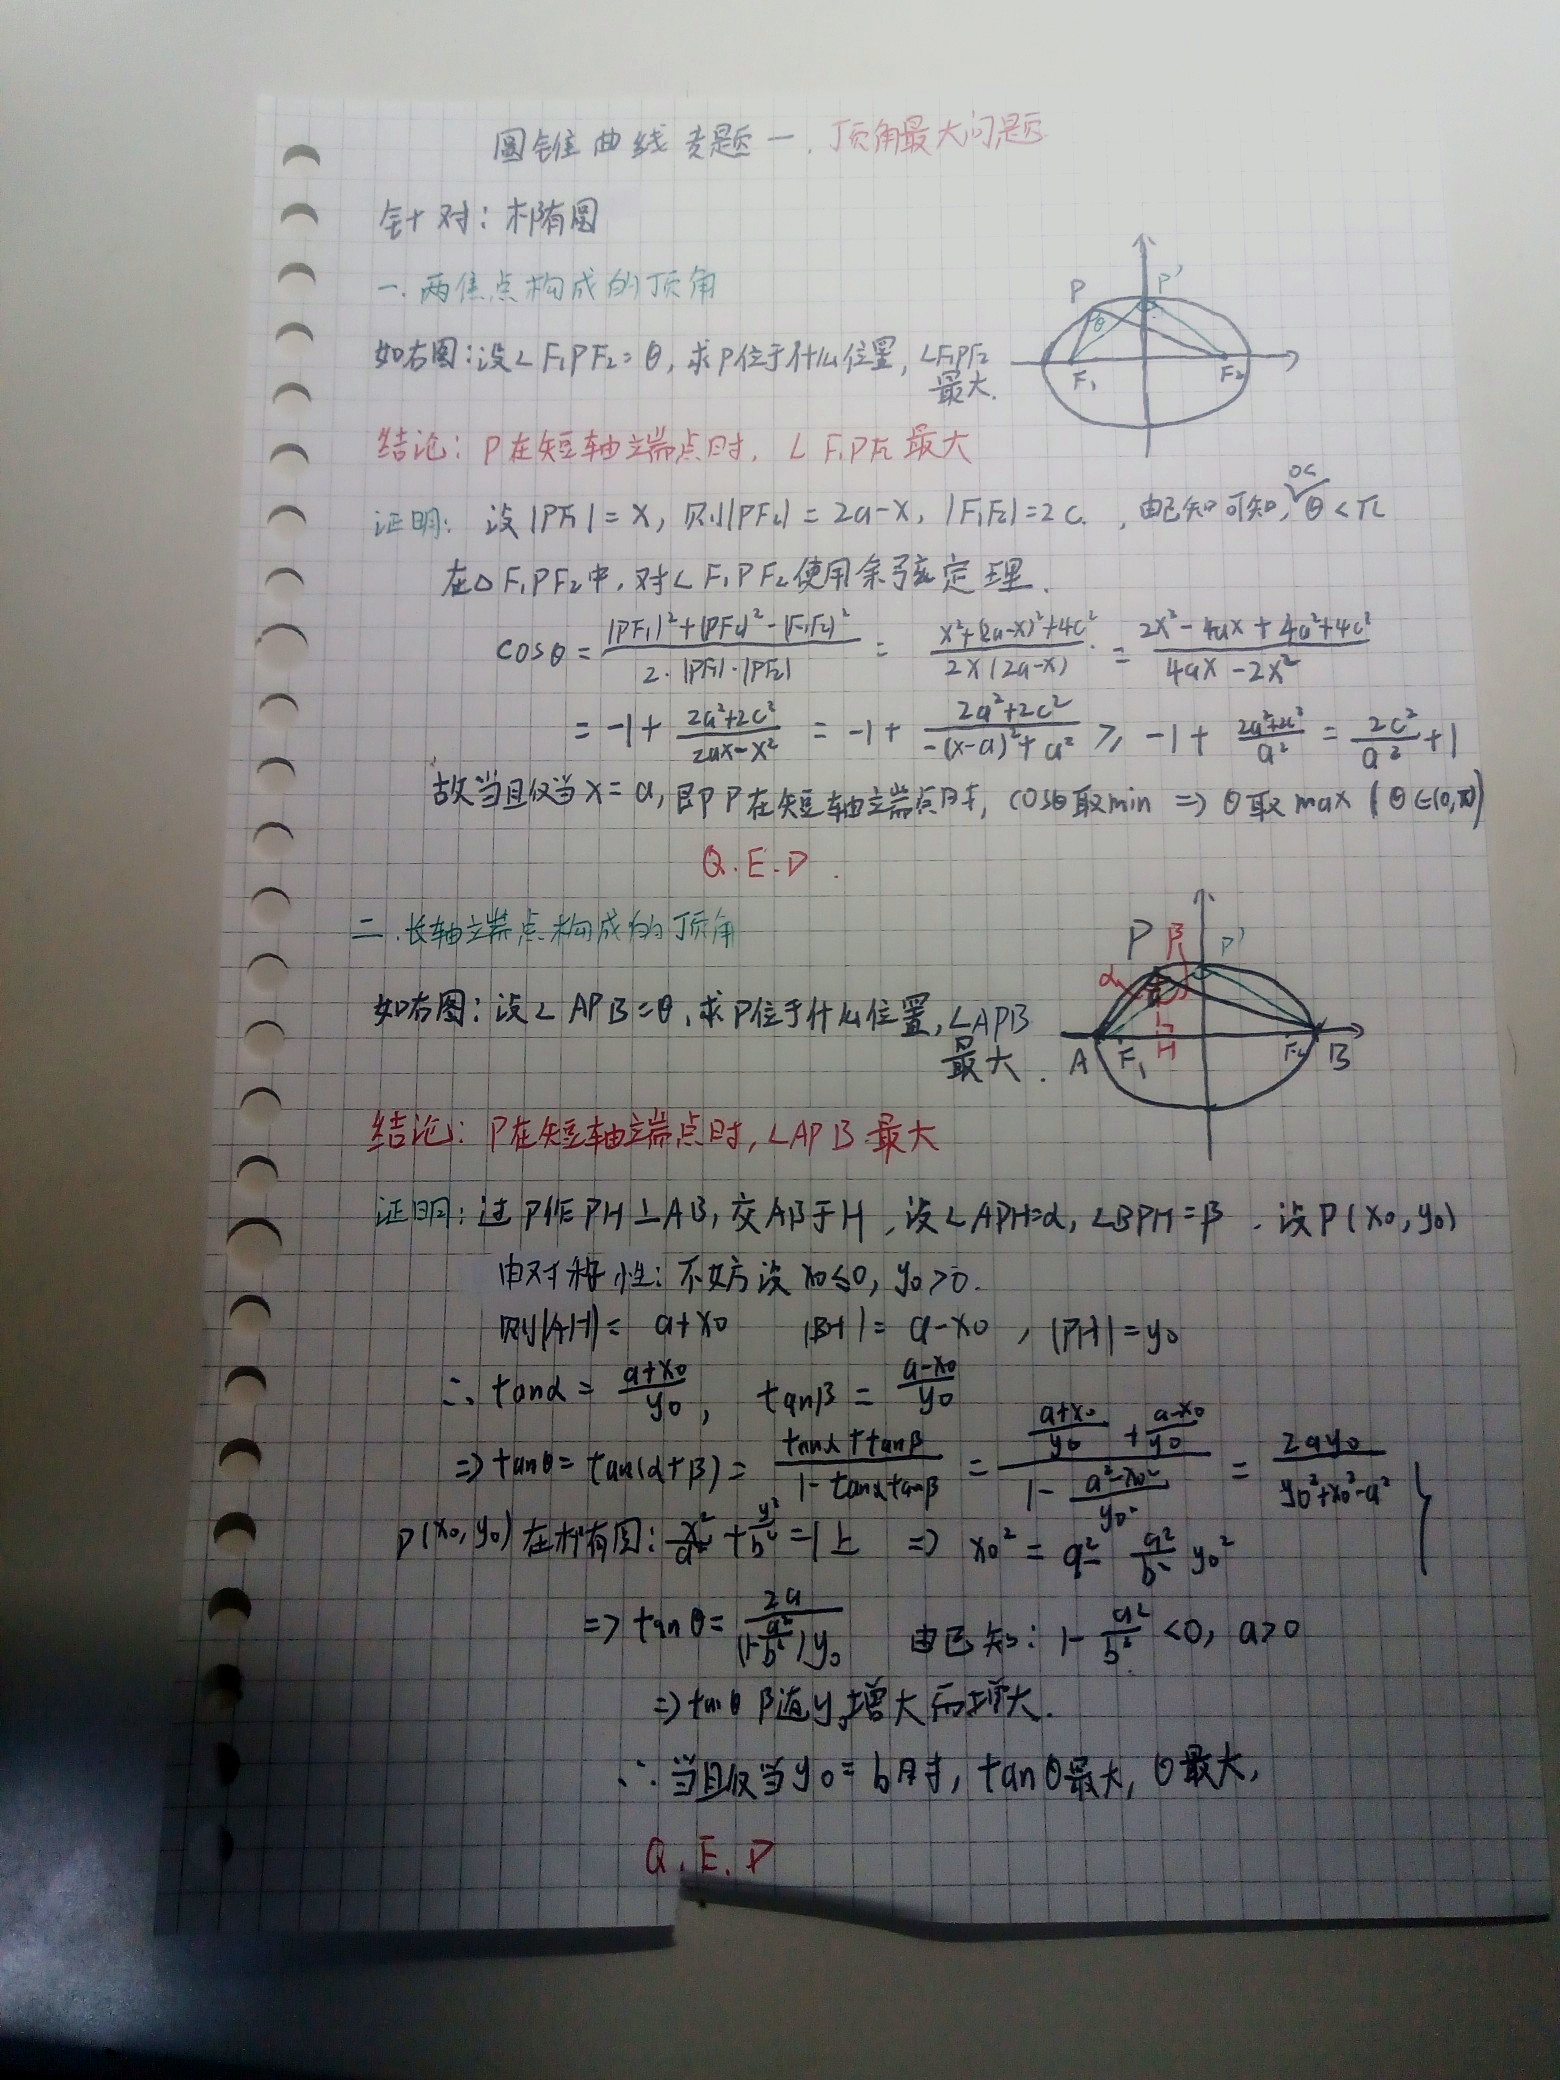 圆锥曲线专题一. 顶角最大问题.
针对: 椭圆
一. 两焦点构成的顶角
如右图: 设∠F₁PF₂=θ, 求P位于什么位置, ∠F₁PF₂
最大.
P P' θ F₁ F₂
结论: P在短轴端点时, ∠F₁PF₂最大
证明: 设|PF₁|=x, 则|PF₂|=2a-x, |F₁F₂|=2c. , 由已知可知, 0<θ<π
在△F₁PF₂中, 对∠F₁PF₂使用余弦定理.
cosθ = (|PF₁|²+|PF₂|²-|F₁F₂|²)/(2·|PF₁|·|PF₂|) = (x²+(2a-x)²+4c²)/(2x(2a-x)) = (2x²-4ax+4a²+4c²)/(4ax-2x²)
= -1+(2a²+2c²)/(2ax-x²) = -1+(2a²+2c²)/(-(x-a)²+a²) ≥ -1+(2a²+2c²)/a² = 2c²/a²+1
故当且仅当x=a, 即P在短轴端点时, cosθ取min ⇒ θ取max (θ∈(0,π))
Q.E.D.
二. 长轴端点构成的顶角
P β P' α
如右图: 设∠APB=θ, 求P位于什么位置, ∠APB
最大.
A F₁ H F₂ B
结论: P在短轴端点时, ∠APB最大
证明: 过P作PH⊥AB, 交AB于H, 设∠APH=α, ∠BPH=β. 设P(x₀,y₀)
由对称性: 不妨设x₀≤0, y₀>0.
则|AH|=a+x₀ |BH|=a-x₀, |PH|=y₀
∴ tanα=(a+x₀)/y₀, tanβ=(a-x₀)/y₀
⇒ tanθ=tan(α+β)=(tanα+tanβ)/(1-tanαtanβ)=((a+x₀)/y₀+(a-x₀)/y₀)/(1-(a²-x₀²)/y₀²)=2ay₀/(y₀²+x₀²-a²)
P(x₀,y₀)在椭圆: x²/a²+y²/b²=1上 ⇒ x₀²=a²-(a²/b²)y₀²
⇒ tanθ=2a/((1-a²/b²)y₀) 由已知: 1-a²/b²<0, a>0
⇒ tanθ随y₀增大而增大.
∴ 当且仅当y₀=b时, tanθ最大, θ最大,
Q.E.D